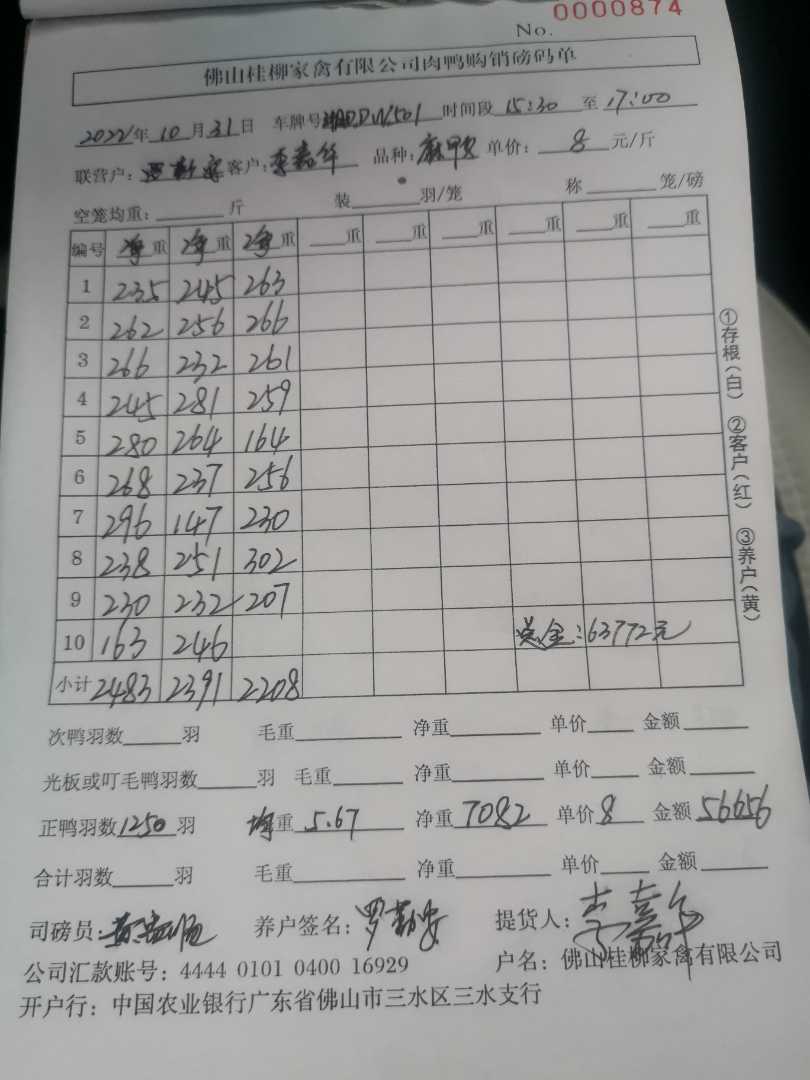 No. 0000874
佛山桂柳家禽有限公司肉鸭购销磅码单
2022年10月31日 车牌号DW501 时间段15:30至17:00
联营户: 罗勤安 客户: 李嘉华 品种: 单价: 8 元/斤
空笼均重: 斤 装 羽/笼 称 笼/磅
编号 净重 净重 净重 重 重 重 重 重 重
1 235 245 263
2 262 256 266
3 266 232 261
4 245 281 259
5 280 264 164
6 268 237 256
7 296 147 230
8 238 251 302
9 230 232 207
10 163 246 总金:63772元
小计 2483 2391 2208
次鸭羽数 羽 毛重 净重 单价 金额
光板或叮毛鸭羽数 羽 毛重 净重 单价 金额
正鸭羽数1250羽 均重 5.67 净重 7082 单价 8 金额 56656
合计羽数 羽 毛重 净重 单价 金额
司磅员: 养户签名: 罗勤安 提货人: 李嘉华
公司汇款账号: 4444 0101 0400 16929 户名: 佛山桂柳家禽有限公司
开户行: 中国农业银行广东省佛山市三水区三水支行
①存根(白) ②客户(红) ③养户(黄)